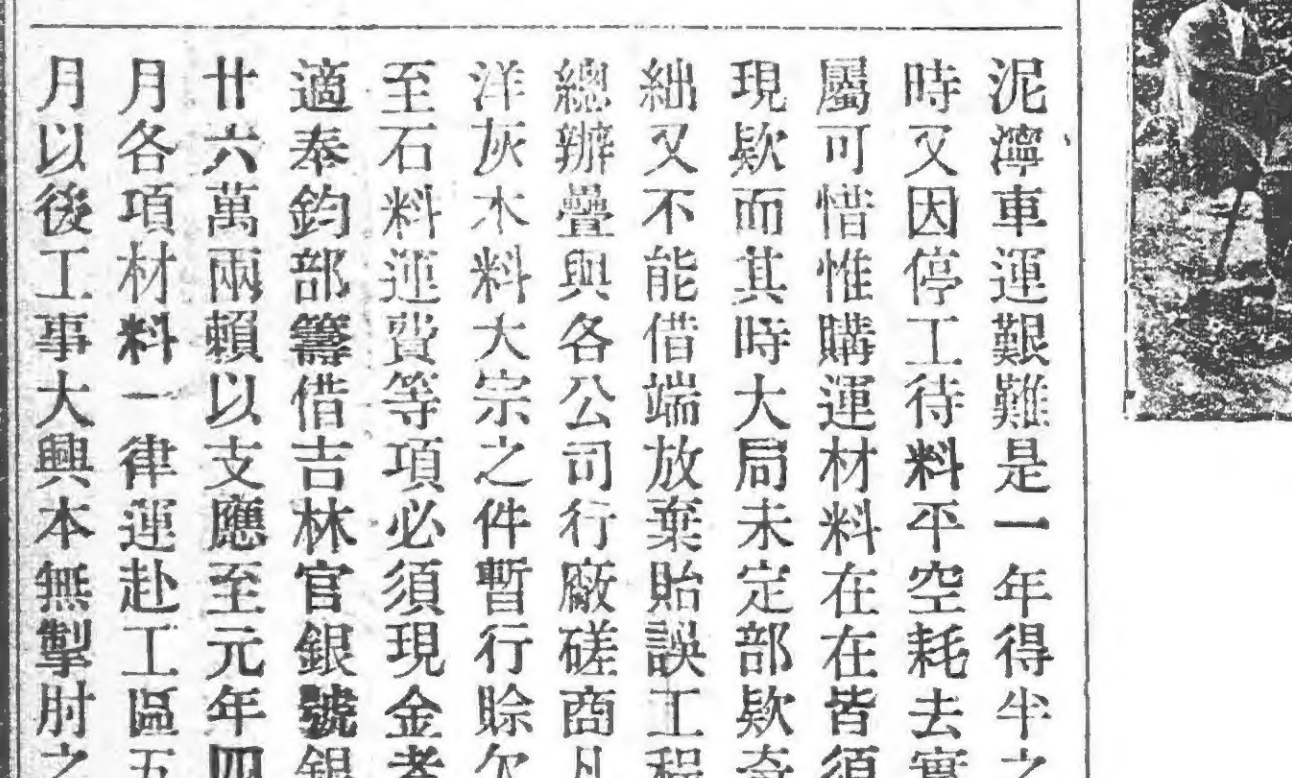 泥濘車運艱難是一年得半之
時又因停工待料平空耗去實
屬可惜惟購運材料在在皆須
現欵而其時大局未定部欵奇
絀又不能借端放棄貽誤工程
總辦疊與各公司行廠磋商凡
洋灰木料大宗之件暫行賒欠
至石料運費等項必須現金者
適奉鈞部籌借吉林官銀號銀
廿六萬兩賴以支應至元年四
月各項材料一律運赴工區五
月以後工事大興本無掣肘之